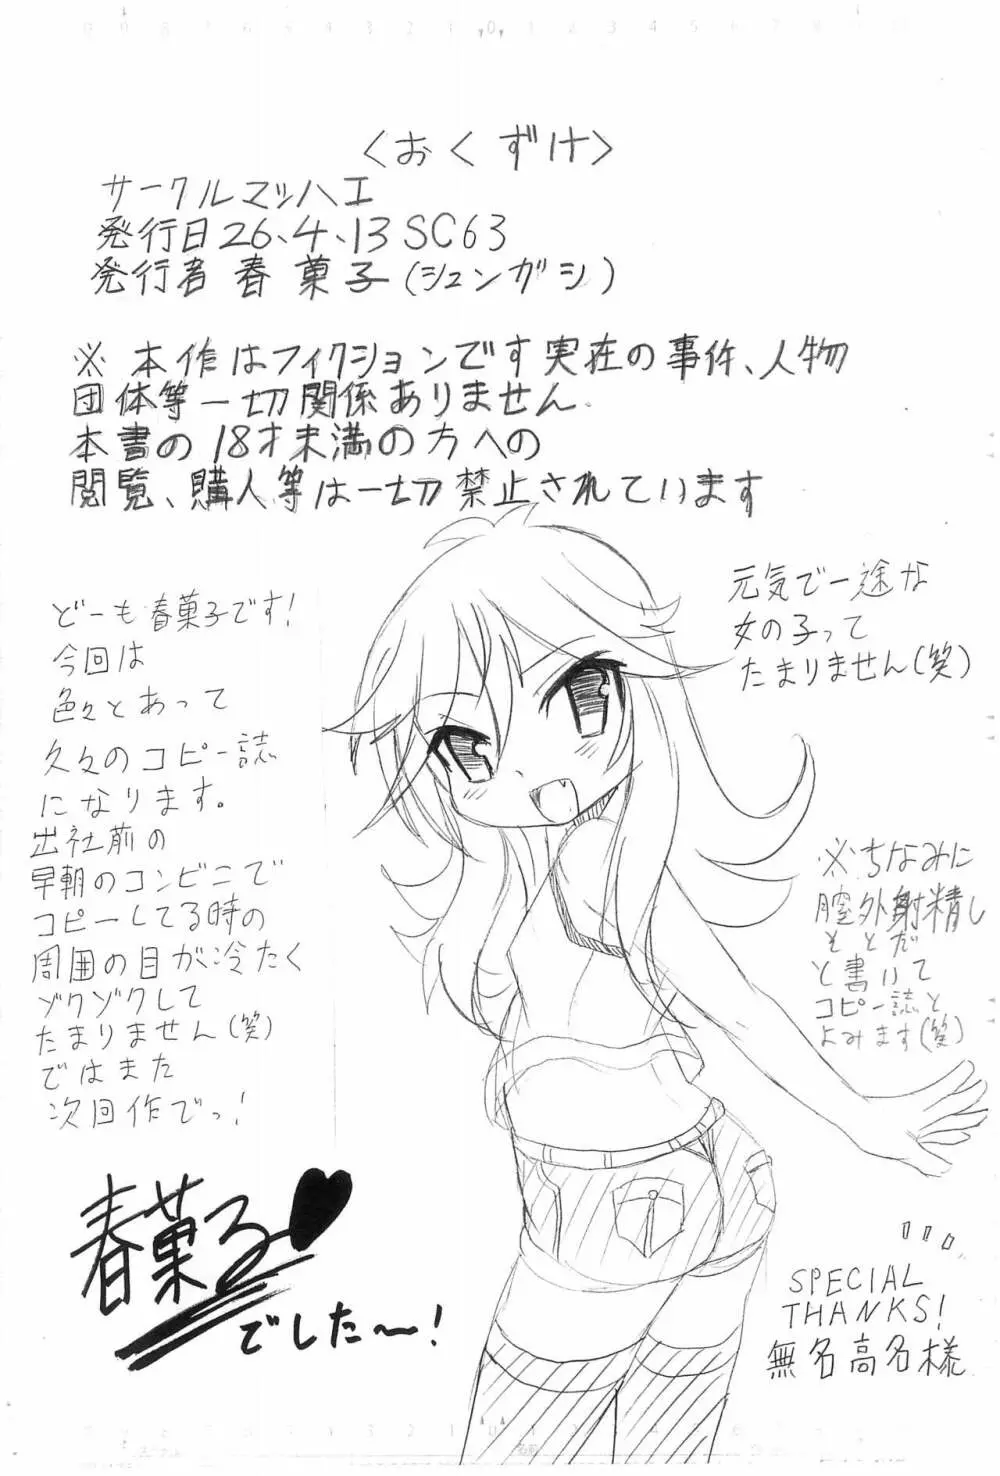 〈おくずけ〉
サークルマッハ工
発行日26、4、13 SC63
発行者 春菓子(シュンガシ)
※本作はフィクションです実在の事件、人物
団体等一切関係ありません.
本書の18才未満の方への
閲覧、購入等は一切禁止されています
どーも春菓子です!
今回は
色々とあって
久々のコピー誌
になります。
出社前の
早朝のコンビニで
コピーしてる時の
周囲の目が冷たく
ゾクゾクして
たまりません(笑)
ではまた
次回作でっ!
元気で一途な
女の子って
たまりません(笑)
※ちなみに
膣外射精し
そとだ
と書いて
コピー誌と
よみます(笑)
春菓子♥
でした〜!
SPECIAL
THANKS!
無名高名様